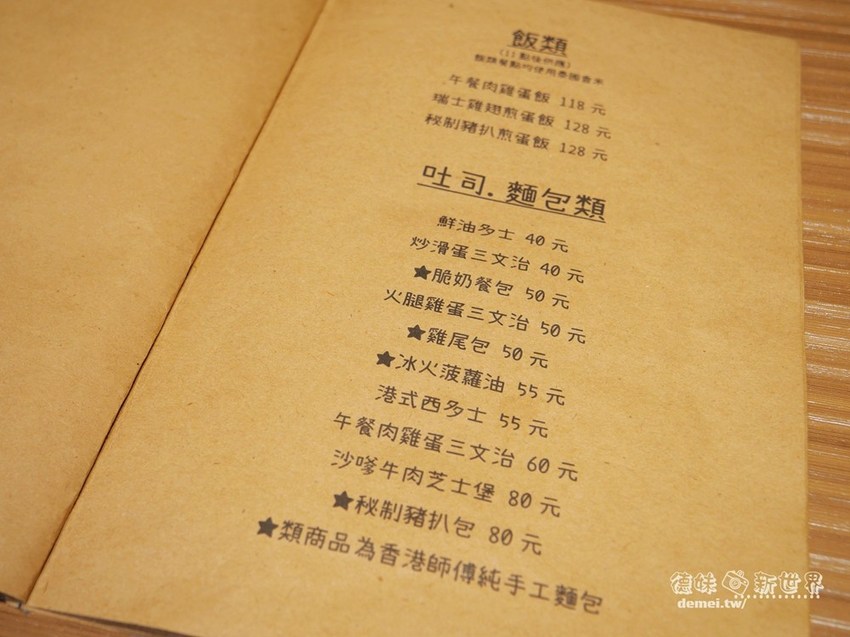 飯類
(11點後供應)
飯類餐點均使用泰國香米
午餐肉雞蛋飯 118 元
瑞士雞翅煎蛋飯 128 元
秘制豬扒煎蛋飯 128 元
吐司．麵包類
鮮油多士 40 元
炒滑蛋三文治 40 元
★脆奶餐包 50 元
火腿雞蛋三文治 50 元
★雞尾包 50 元
★冰火菠蘿油 55 元
港式西多士 55 元
午餐肉雞蛋三文治 60 元
沙嗲牛肉芝士堡 80 元
★秘制豬扒包 80 元
★類商品為香港師傅純手工麵包
德味 新世界
demei.tw/